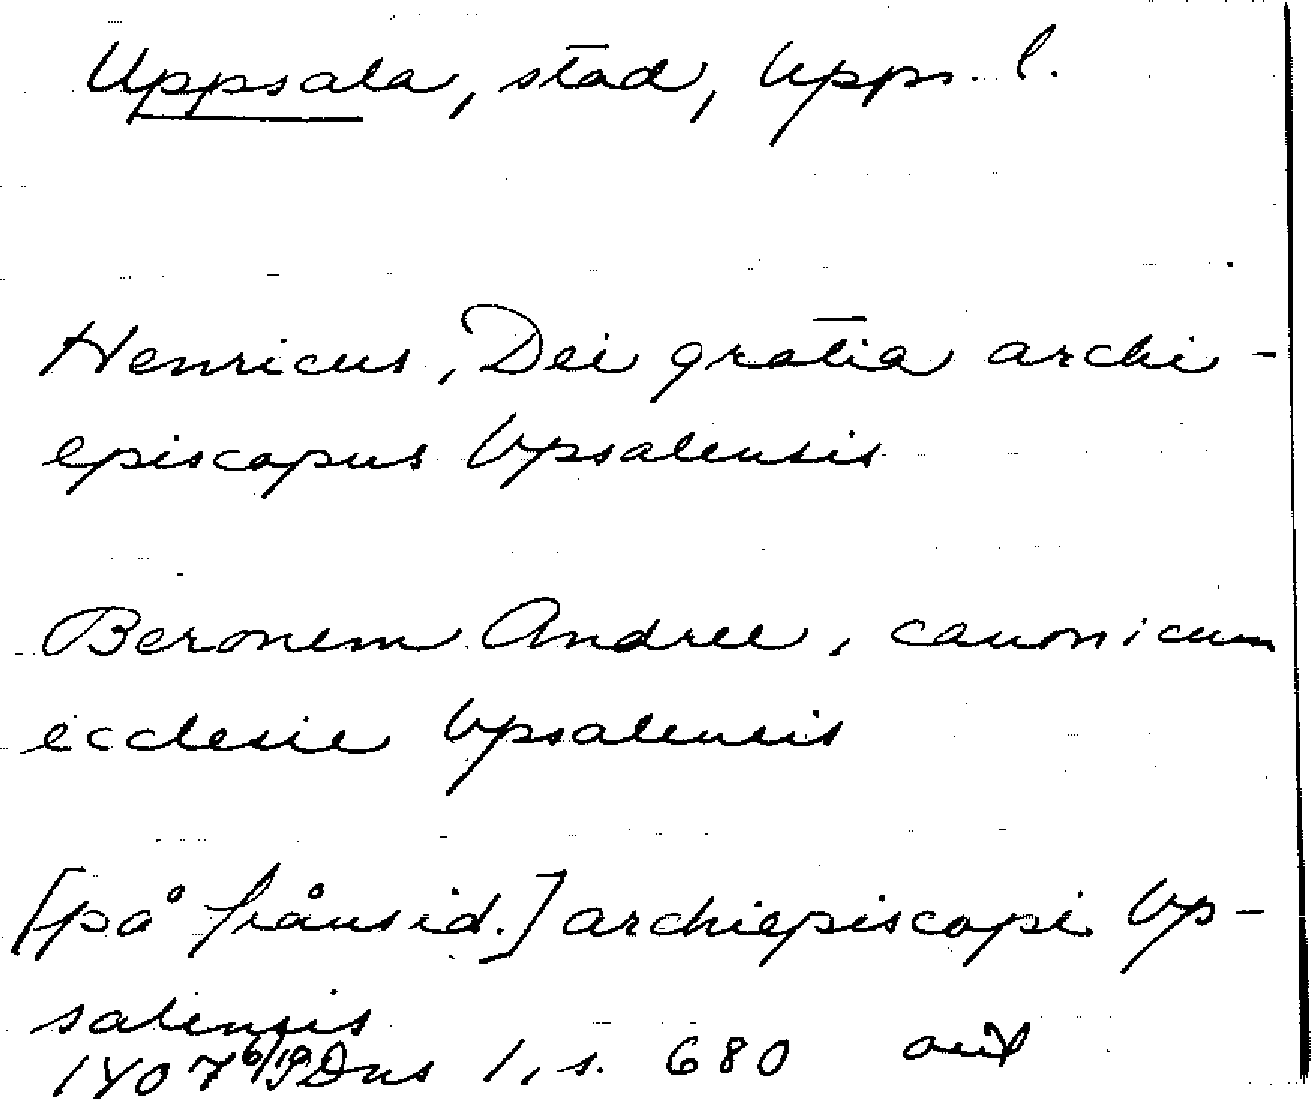 Uppsala, stad, Upps. l.
Henricus, Dei gratia archi-
episcopus Vpsalensis
Beronem Andree, canonicum
ecclesie Vpsalensis
[på frånsid.] archiepiscopi Vp-
salensis
1407 6/19 Dns 1, s. 680